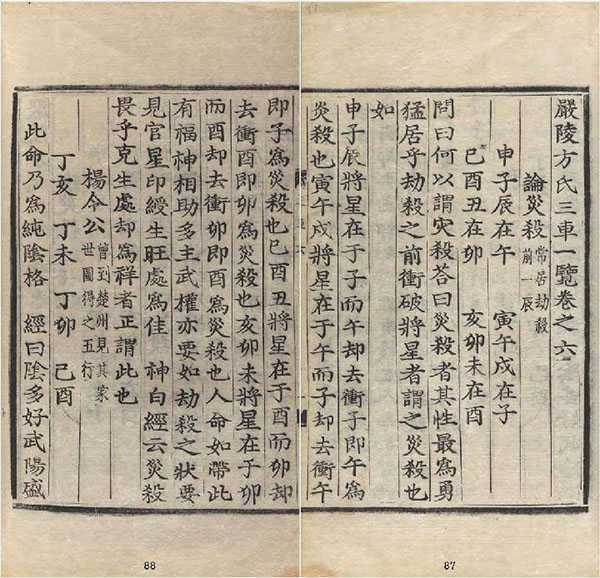 嚴陵方氏三車一覽卷之六
論災殺 常居劫殺
前一辰
申子辰在午 寅午戌在子
巳酉丑在卯 亥卯未在酉
問曰何以謂灾殺答曰災殺者其性最爲勇
猛居乎劫殺之前衝破將星者謂之災殺也
如
申子辰將星在于子而午却去衝子即午爲
災殺也寅午戌將星在于午而子却去衝午
即子爲災殺也巳酉丑將星在于酉而卯却
去衝酉即卯爲災殺也亥卯未將星在于卯
而酉却去衝卯即酉爲災殺也人命如帶此
有福神相助多主武權亦要如劫殺之狀要
見官星印綬生旺處爲佳 神白經云災殺
畏乎克生處却爲祥者正謂此也
楊令公 曾到楚州見其家
世圖得之五行
丁亥 丁未 丁卯 己酉
此命乃爲純陰格 經曰陰多好武陽盛
87
88